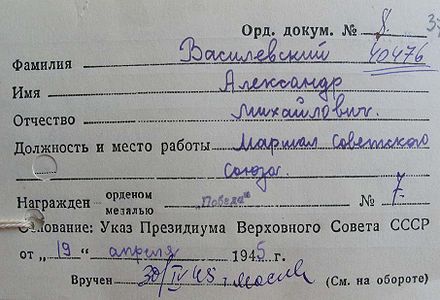 Орд. докум. № 8.
Фамилия Василевский 40476
Имя Александр
Отчество Михайлович.
Должность и место работы Маршал Советского
Союза.
Награжден орденом
медалью „Победа" № 7.
Основание: Указ Президиума Верховного Совета СССР
от „19" апреля 1945 г.
Вручен 30/IV 45 г. (См. на обороте)